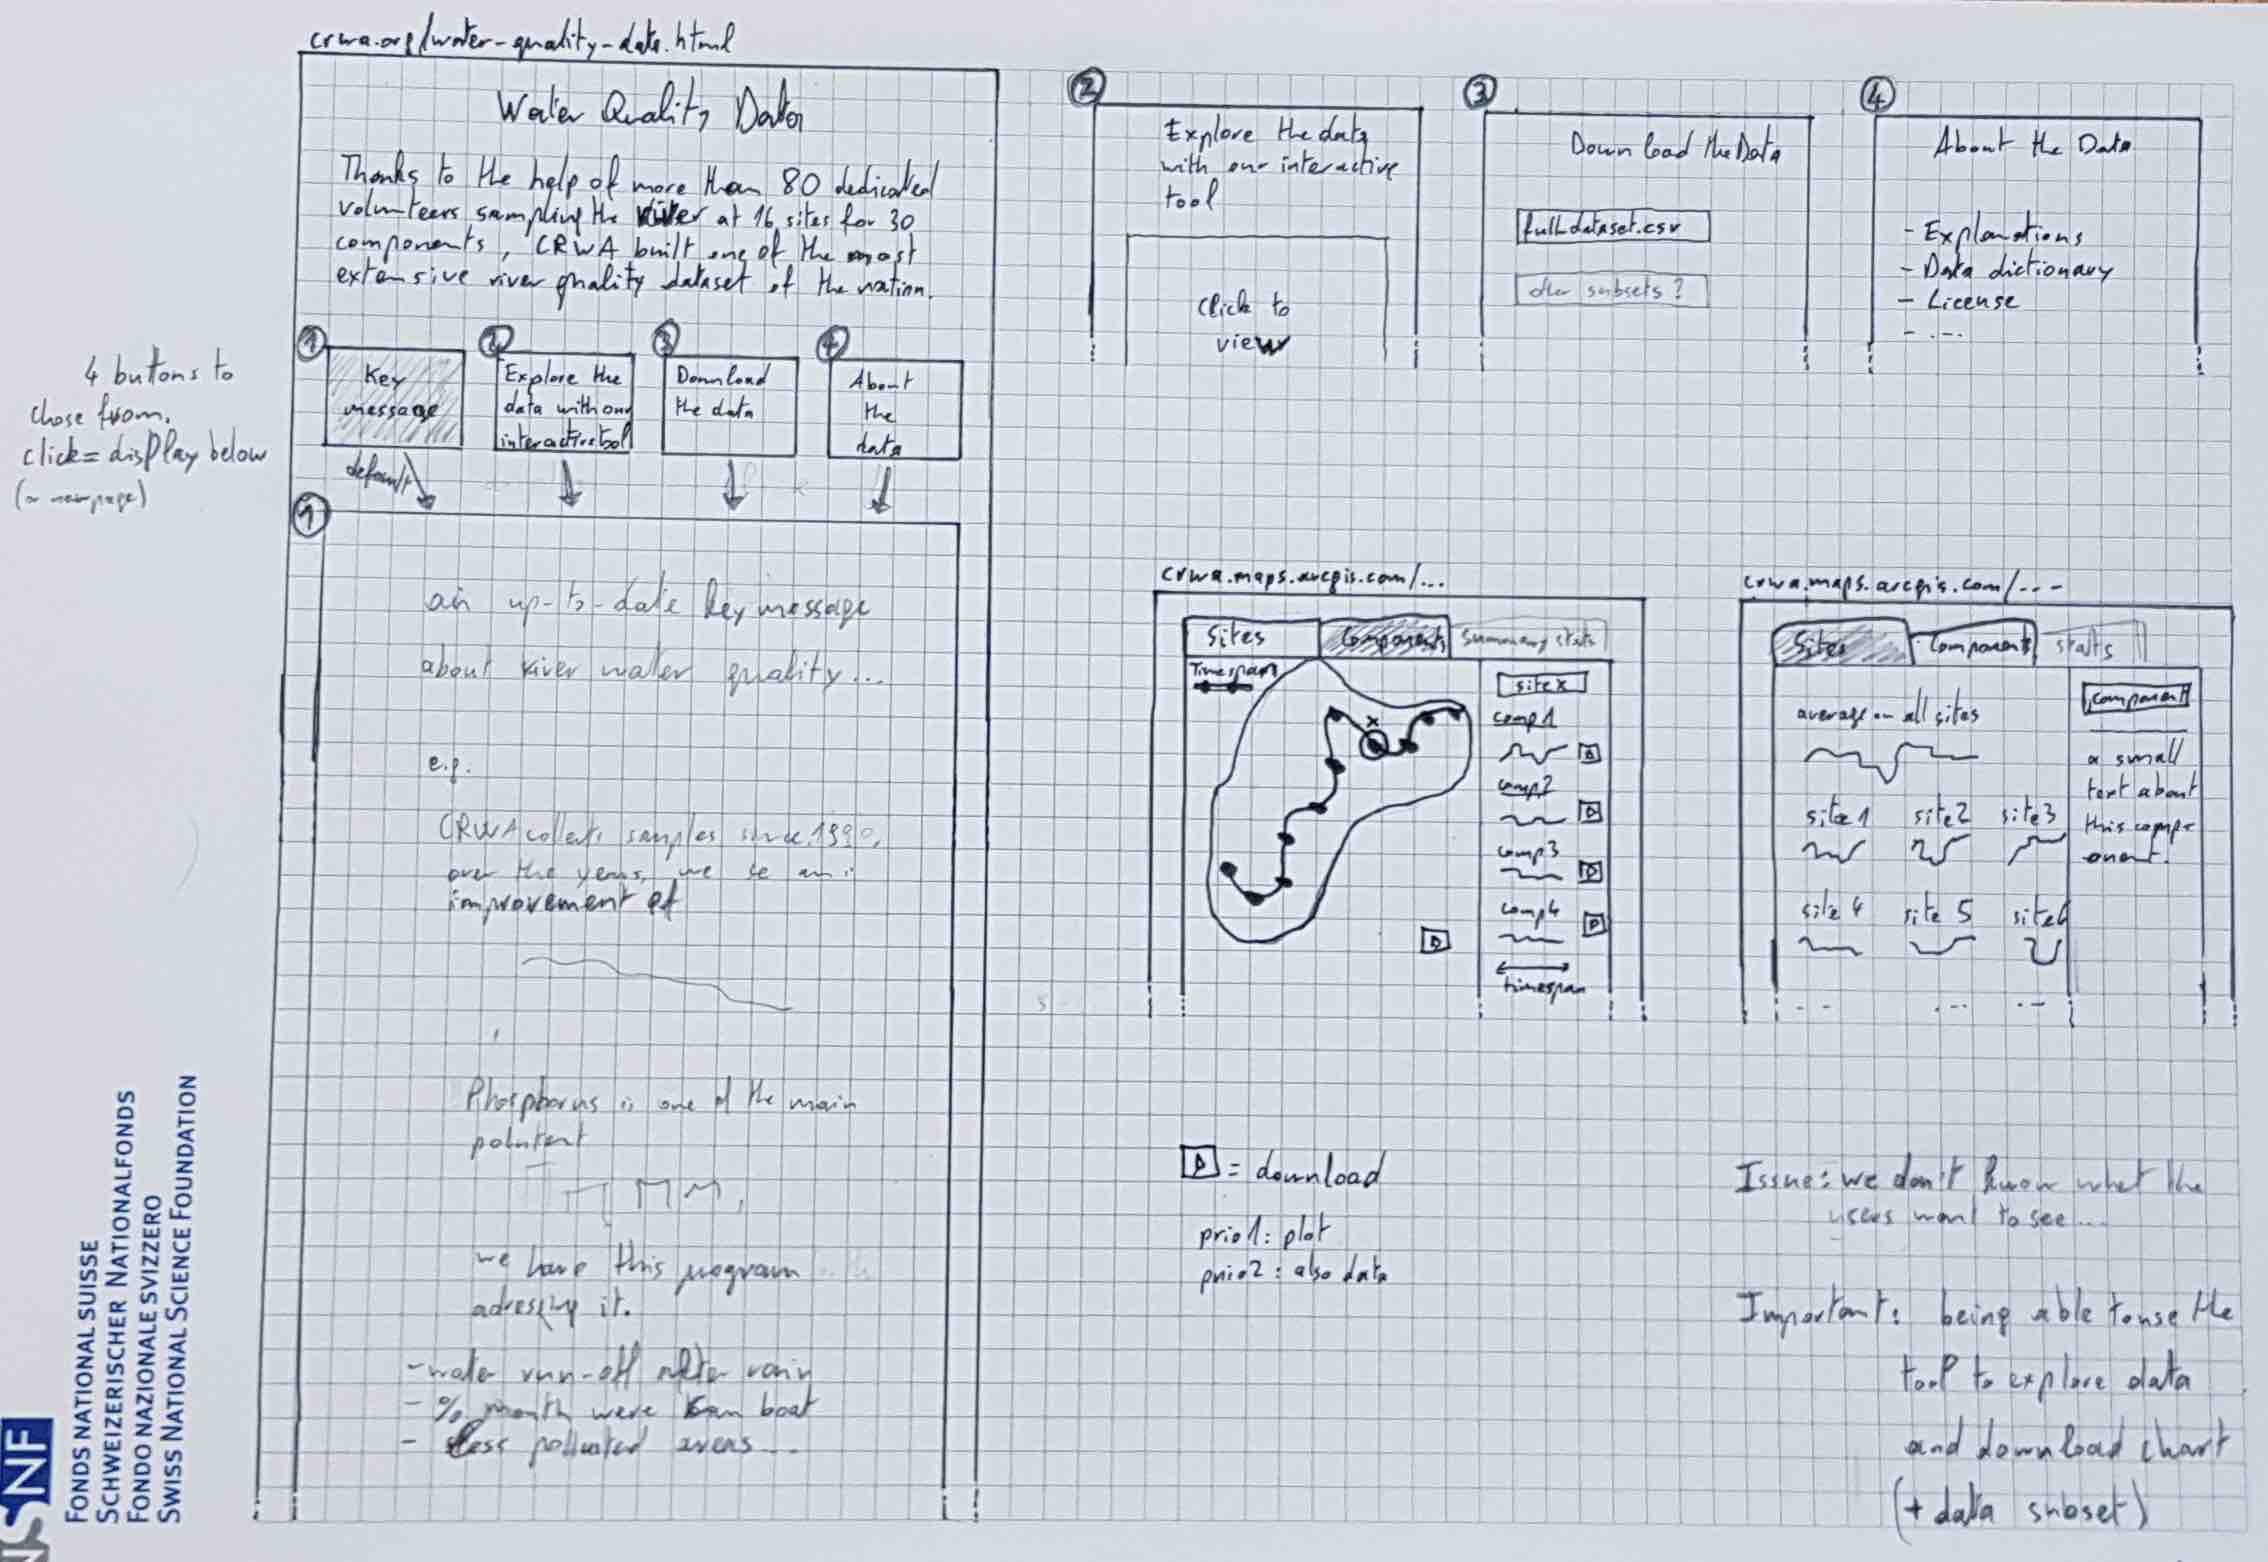 crwa.org/water-quality-data.html
Water Quality Data
Thanks to the help of more than 80 dedicated
volunteers sampling the river at 16 sites for 30
components, CRWA built one of the most
extensive river quality dataset of the nation.
4 buttons to
chose from.
click = display below
(or new page)
1
Key
message
2
Explore the
data with our
interactive tool
3
Download
the data
4
About
the
data
default
1
an up-to-date key message
about river water quality...
e.g.
CRWA collects samples since 1990,
over the years, we se an
improvement of
Phosphorus is one of the main
polutent
we have this program
adressing it.
- water run-off after rain
- % month were can boat
- less polluated areas...
2
Explore the data
with our interactive
tool
Click to
view
3
Download the Data
full dataset.csv
other subsets?
4
About the Data
- Explanations
- Data dictionary
- License
- ...
crwa.maps.arcgis.com/...
Sites
Components
Summary stats
Timespan
x
site x
comp1
D
comp2
D
comp3
D
comp4
D
D
timespan
crwa.maps.arcgis.com/...
Sites
Components
stats
average on all sites
site 1 site 2 site 3
site 4 site 5 site 6
... ... ...
component
a small
text about
this comp-
onent.
D = download
prio1: plot
prio2: also data
Issue: we don't know what the
users want to see...
Important: being able to use the
tool to explore data
and download chart
(+ data subset)
SNF
FONDS NATIONAL SUISSE
SCHWEIZERISCHER NATIONALFONDS
FONDO NAZIONALE SVIZZERO
SWISS NATIONAL SCIENCE FOUNDATION